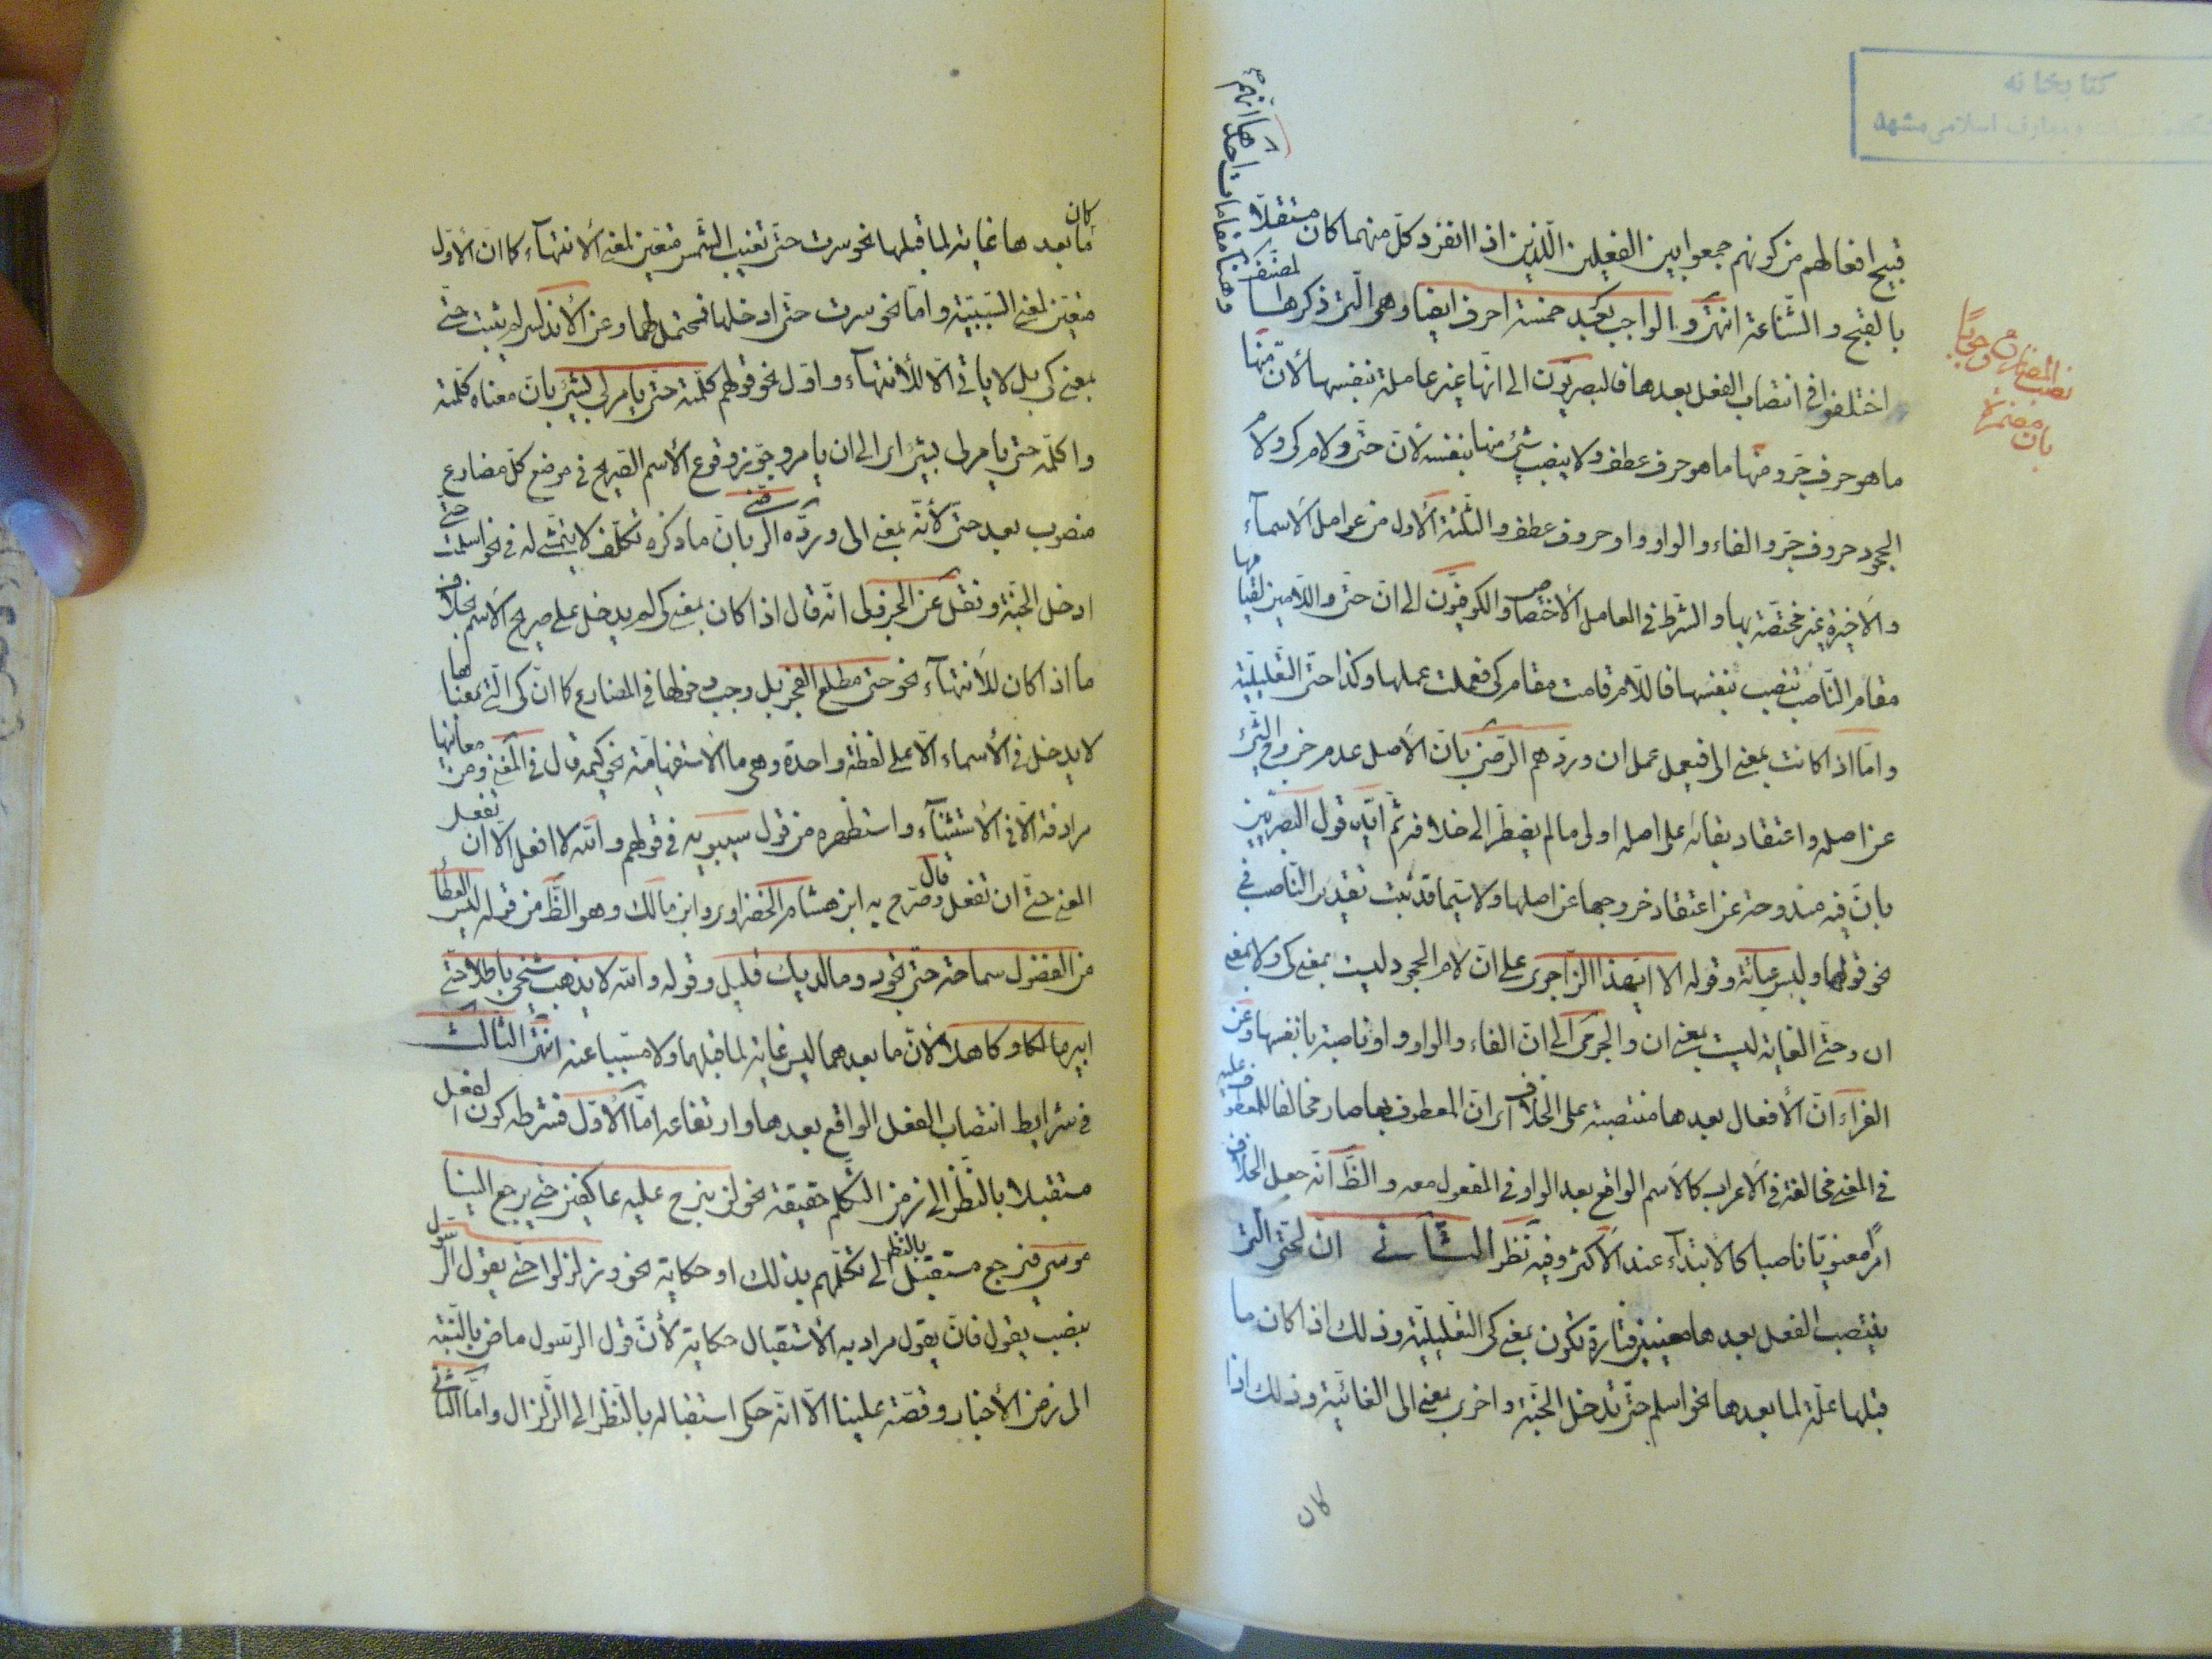 كتابخانه
ومعارف اسلامی مشهد
نصب المضارع وجوبًا
بان مضمرة
وهنا مقامات احدها انهم
قبيح افعالهم من كونهم جمعوا بين الفعلين الّذين اذا انفرد كلّ منهما كان مستقلّا
بالقبح و الشّناعة انتهى و الواجب بعد خمسة احرف ايضا وهى الّتى ذكرها المصنّف
اختلفوا فى انتصاب الفعل بعدها فالبصريّون الى انّها غير عاملة بنفسها لأنّ منها
ما هو حرف جرّ و منها ما هو حرف عطف ولا ينصب شئ منها بنفسه لأنّ حتّى ولام كى ولام
الجحود حروف جرّ و الفاء و الواو و او حروف عطف و الثلثة الأول من عوامل الأسماء
و الأخيرة غير مختصّة بها و الشّرط فى العامل الأختصاص و الكوفيّون الى انّ حتّى و اللّامين لقيامها
مقام النّاصب تنصب بنفسها فاللّام قامت مقام كى فعملت عملها و كذا حتّى التّعليليّة
و امّا اذا كانت بمعنى الى فيعمل عمل ان و ردّهم الرّضىّ بانّ الأصل عدم خروج الشّئ
عن اصله و اعتقاد بقائه على اصله اولى ما لم يضطرّ الى خلافه ثمّ ايّد قول البصريّين
بانّ فيه مندوحة عن اعتقاد خروجها عن اصلها ولا سيّما قد ثبت تقدير النّاصب فى
نحو قولها ولبس عبائة و قوله الا ايّهذا الزّاجرى على انّ لام الجحود ليست بمعنى كى ولا بمعنى
ان و حتّى الغاية ليست بمعنى ان و الجرمى الى انّ الفاء و الواو و او ناصبة بانفسها و عن
الفراء انّ الأفعال بعدها منتصبة على الخلاف اى انّ المعطوف بها صار مخالفا للمعطوف عليه
فى المعنى فخالفه فى الأعراب كالأسم الواقع بعد الواو فى المفعول معه و الظّ انّه جعل الخلاف
امرًا معنويّا ناصبا كالابتداء عند الأكثر و فيه نظر الثّانى انّ لحتّى الّتى
ينتصب الفعل بعدها معنيين فتارة تكون بمعنى كى التّعليليّة و ذلك اذا كان ما
قبلها علّة لما بعدها نحو اسلم حتّى تدخل الجنّة و اخرى بمعنى الى الغائيّة و ذلك اذا
كان
كان ما بعدها غاية لما قبلها نحو سرت حتّى تغيب الشّمس متعيّن لمعنى الأنتهاء كما انّ الأوّل
متعيّن لمعنى السّببيّة و امّا نحو سرت حتّى ادخلها فمحتمل لهما و عن الأندلسى لم يثبت حتّى
بمعنى كى بل لا ياتى الّا للأنتهاء و اوّل نحو قولهم كلّمته حتّى يامر لى بشئ بانّ معناه كلّمته
و اكلّمه حتّى يامر لى بشئ اى الى ان يامر و جوّز وقوع الأسم الصّريح فى موضع كلّ مضارع
منصوب بعد حتّى لأنّه بمعنى الى و ردّه الرضىّ بانّ ما ذكره تكلّف لا يتمشّى له فى نحو اسلمت حتّى
ادخل الجنّة و نقل عن الجزولى انّه قال اذا كان بمعنى كى لم يدخل على صريح الأسم بخلاف
ما اذا كان للأنتهاء نحو حتّى مطلع الفجر بل وجب دخولها فى المضارع كما انّ كى الّتى بمعناها
لا يدخل فى الأسماء الّا على لفظة واحدة وهى ما الأستفهاميّة نحو كيمه قال فى المغنى ومن معانيها
مرادفة الّا فى الأستثناء و استظهره من قول سيبويه فى قولهم و اللّه لا افعل الا ان تفعل
المعنى حتّى ان تفعل قال و صرّح به ابن هشام الخضراوى و ابن مالك و هو الظّ من قوله ليس العطاء
من الفضول سماحة حتّى تجود و ما لديك قليل و قوله و اللّه لا يذهب شيخى باطلا حتّى
ابير مالكا و كاهلا لأنّ ما بعدهما ليس غاية لما قبلهما ولا مسبّبا عنه انتهى الثّالث
فى شرايط انتصاب الفعل الواقع بعدها و ارتفاعه امّا الأوّل فشرطه كون الفعل
مستقبلا بالنّظر الى زمن التّكلّم حقيقة نحو لن نبرح عليه عاكفين حتّى يرجع الينا
موسى فيرجع مستقبل بالنظر الى تكلّمهم بذلك او حكاية نحو و زلزلوا حتّى يقول الرّسول
بنصب يقول فانّ يقول مراد به الأستقبال حكاية لأنّ قول الرّسول ماض بالنّسبة
الى زمن الأخبار و قصّته علينا الّا انّه حكى استقباله بالنّظر الى الزّلزال و امّا الثّانى